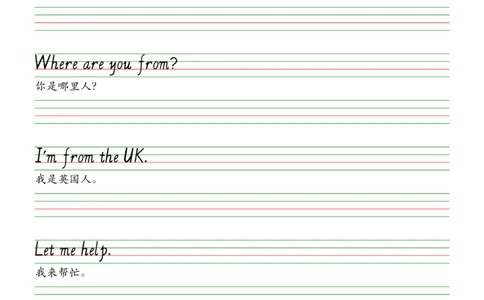 Where are you from?
你是哪里人?
I'm from the UK.
我是英国人。
Let me help.
我来帮忙。